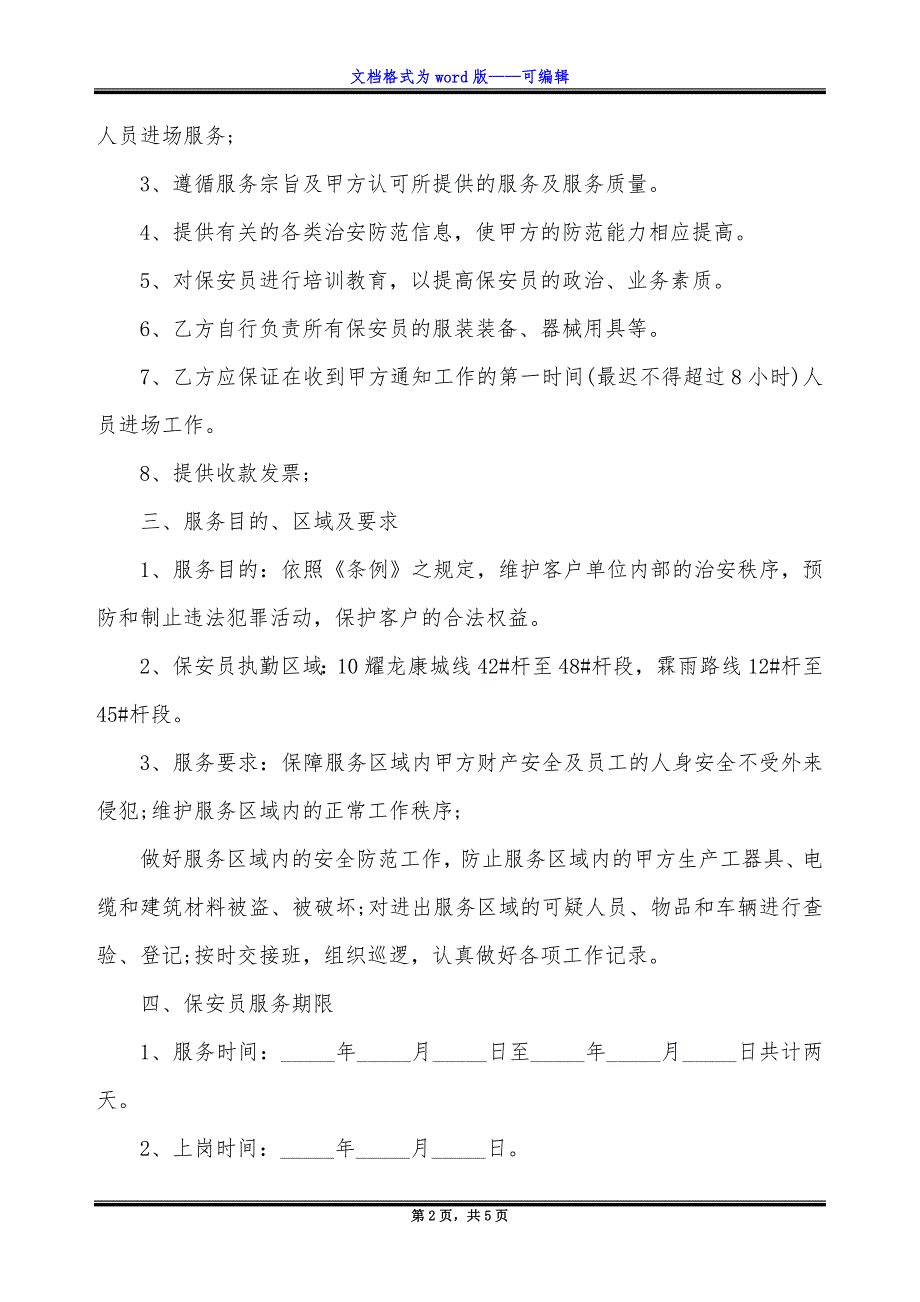 文档格式为 word 版——可编辑
人员进场服务;
3、遵循服务宗旨及甲方认可所提供的服务及服务质量。
4、提供有关的各类治安防范信息，使甲方的防范能力相应提高。
5、对保安员进行培训教育，以提高保安员的政治、业务素质。
6、乙方自行负责所有保安员的服装装备、器械用具等。
7、乙方应保证在收到甲方通知工作的第一时间(最迟不得超过 8 小时)人
员进场工作。
8、提供收款发票;
三、服务目的、区域及要求
1、服务目的：依照《条例》之规定，维护客户单位内部的治安秩序，预
防和制止违法犯罪活动，保护客户的合法权益。
2、保安员执勤区域：10 耀龙康城线 42#杆至 48#杆段，霖雨路线 12#杆至
45#杆段。
3、服务要求：保障服务区域内甲方财产安全及员工的人身安全不受外来
侵犯;维护服务区域内的正常工作秩序;
做好服务区域内的安全防范工作，防止服务区域内的甲方生产工器具、电
缆和建筑材料被盗、被破坏;对进出服务区域的可疑人员、物品和车辆进行查
验、登记;按时交接班，组织巡逻，认真做好各项工作记录。
四、保安员服务期限
1、服务时间：_____年_____月_____日至_____年_____月_____日共计两
天。
2、上岗时间：_____年_____月_____日。
第 2 页，共 5 页